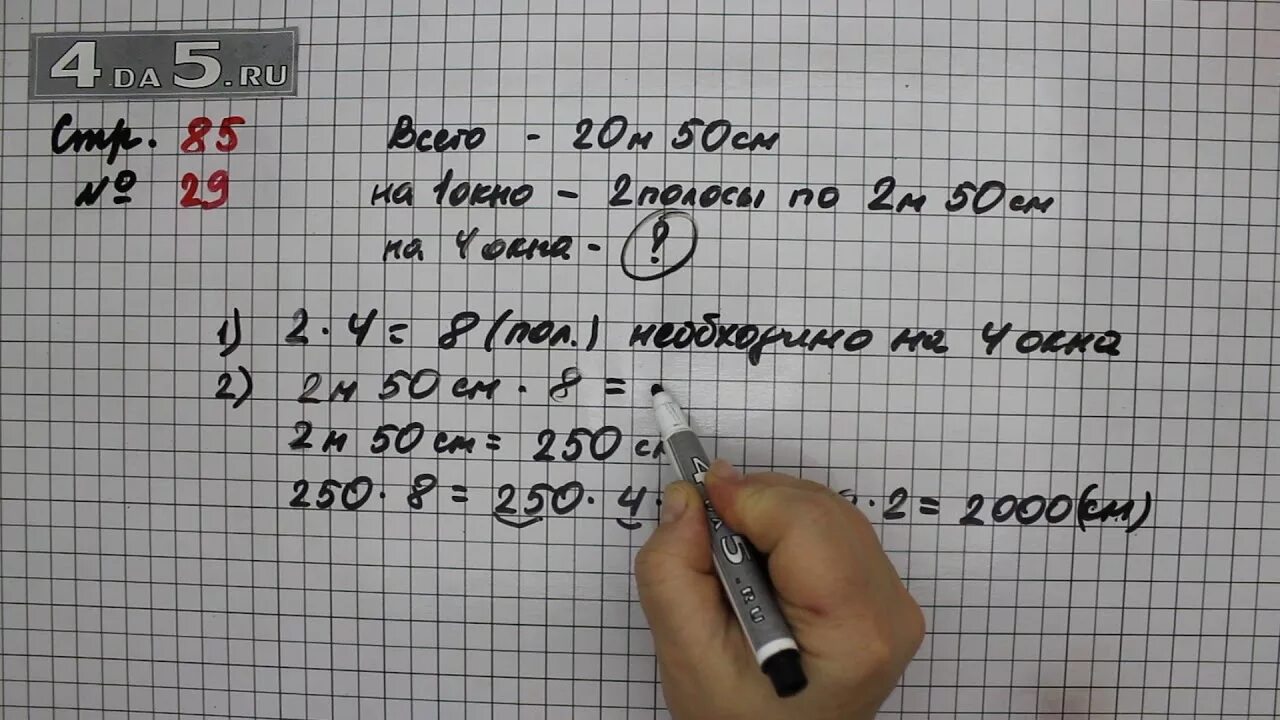 4DA5.RU
Стр. 85
№ 29
Всего - 20м 50см
на 1окно - 2полосы по 2м 50см
на 4окна - ?
1) 2 · 4 = 8 (пол.) необходимо на 4окна
2) 2м 50см · 8 =
2м 50см = 250 см
250 · 8 = 250 · 4 · 2 = 2000(см)
4 5.RU